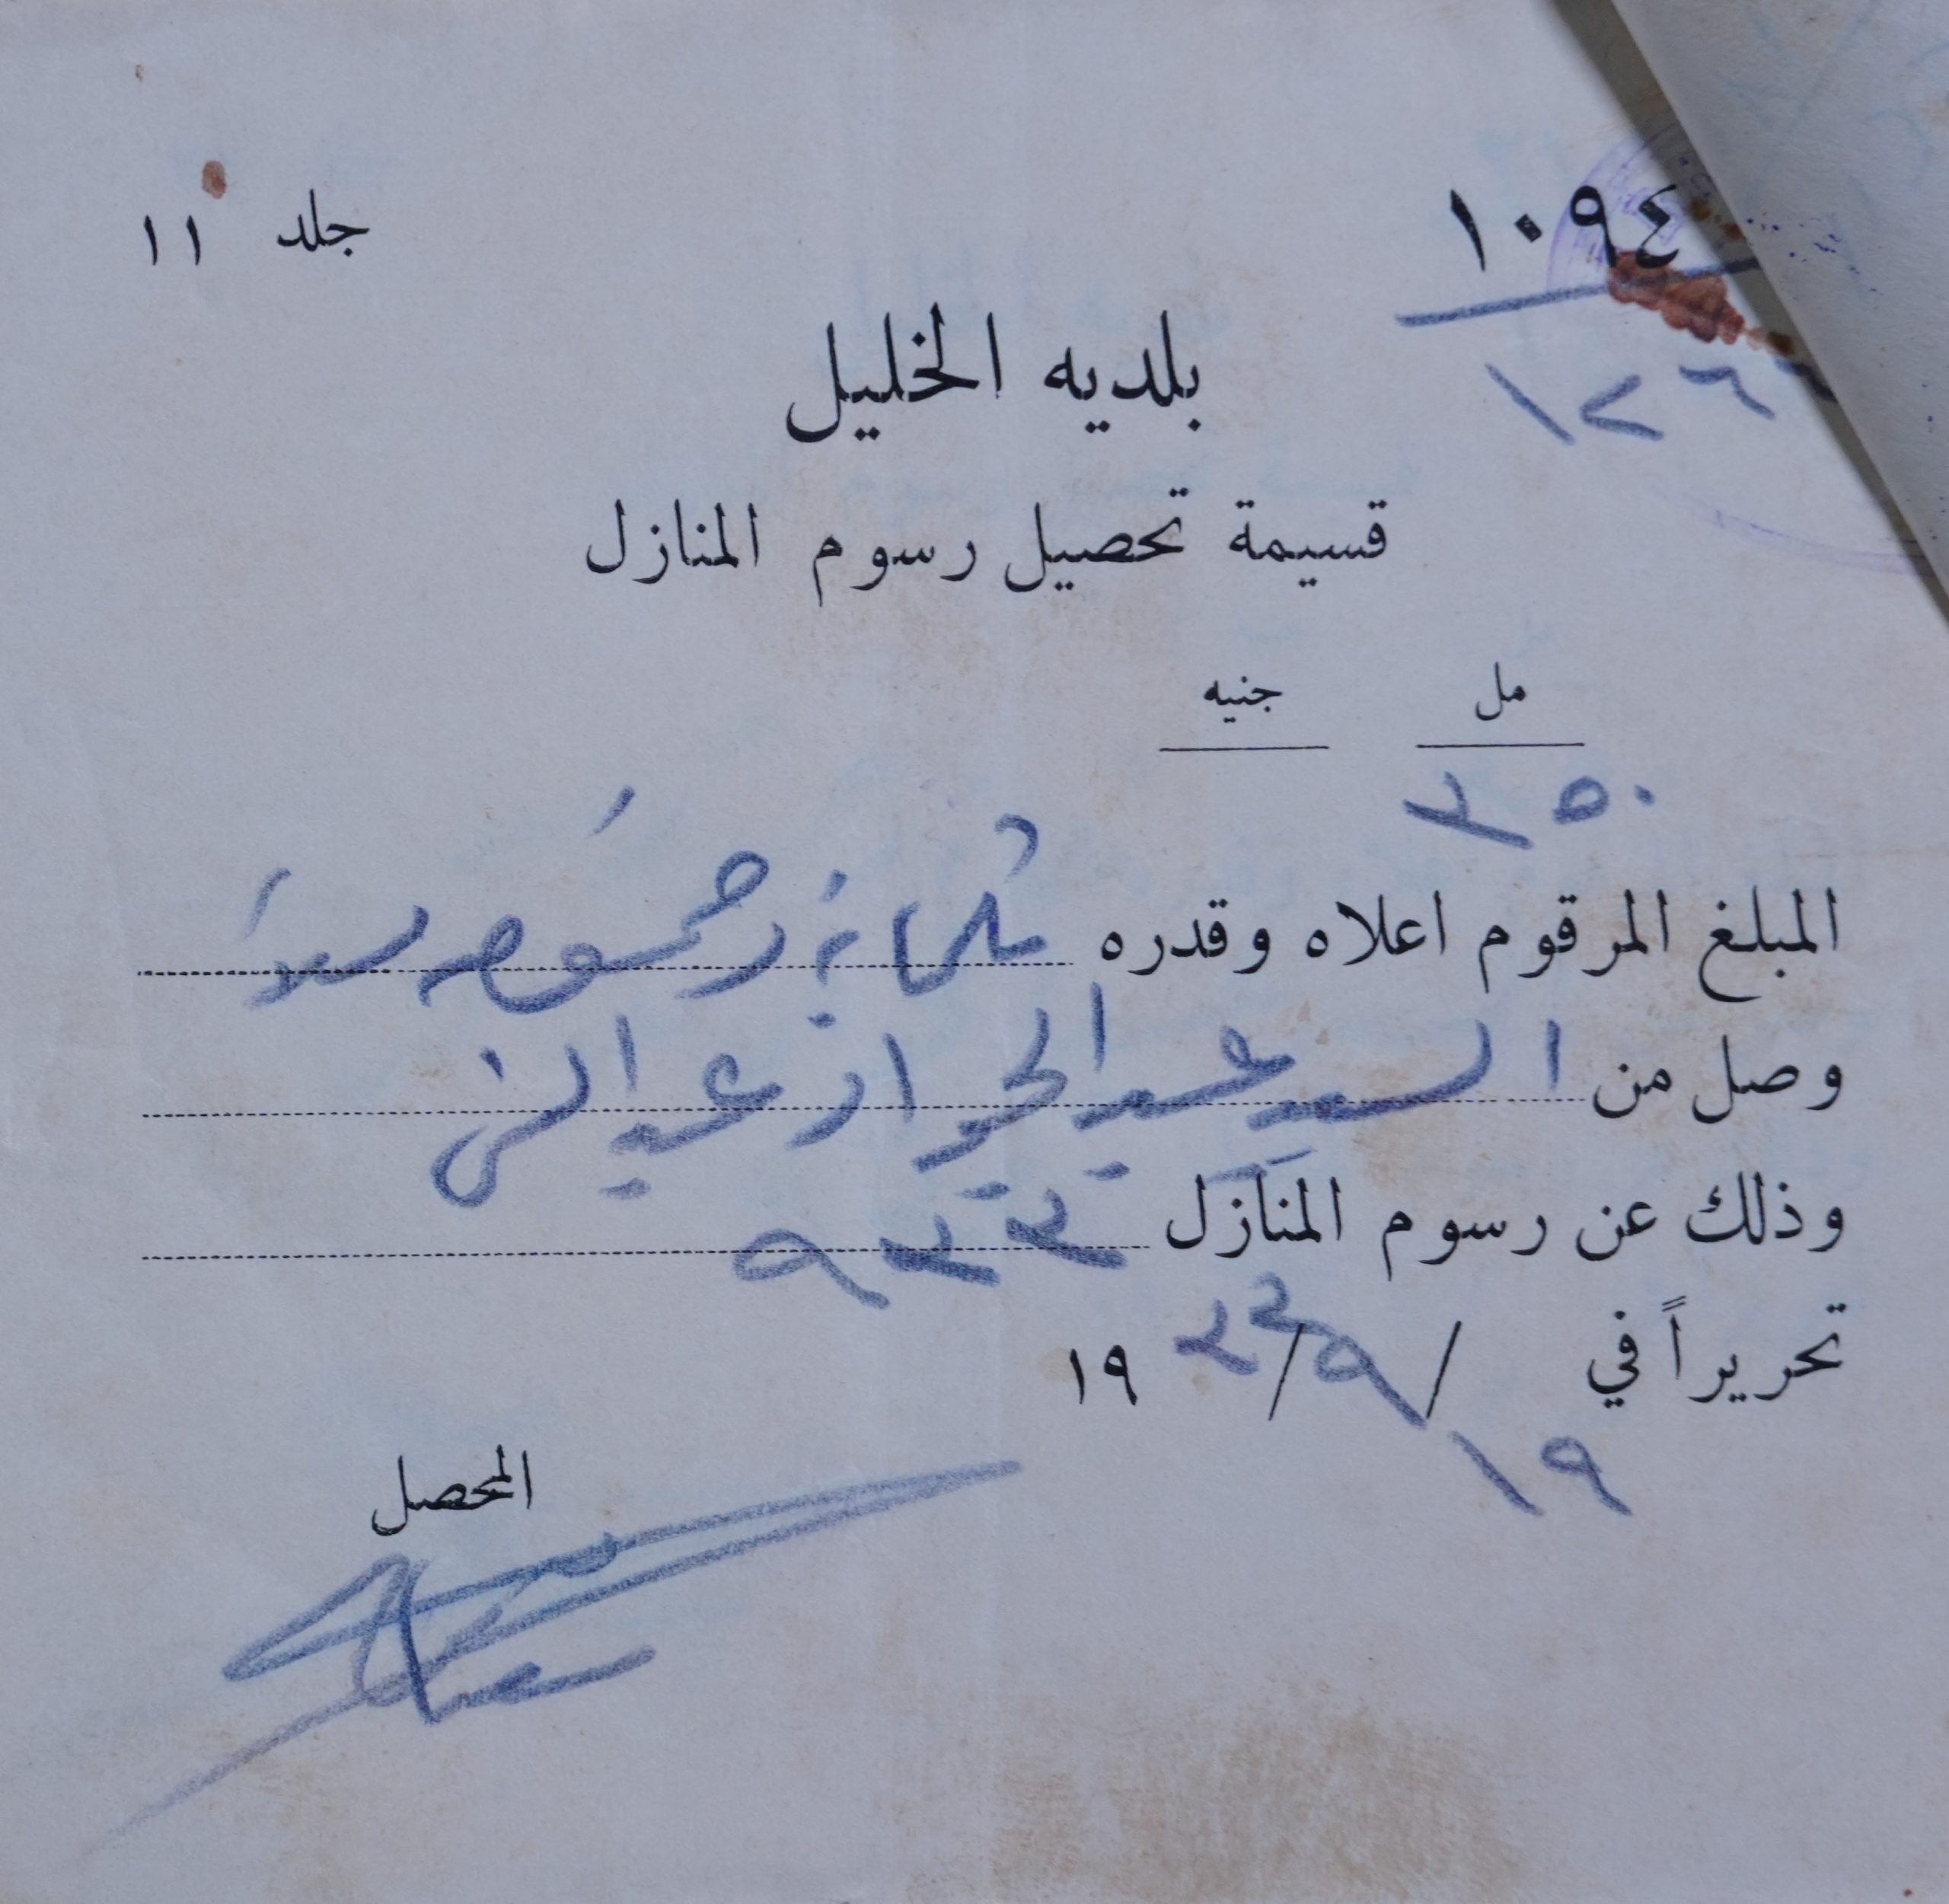 ١٠٩٤
جلد ١١
بلديه الخليل
قسيمة تحصيل رسوم المنازل
مل جنيه
٣٥٠
المبلغ المرقوم اعلاه وقدره ثلثماية وخمسون ملاً
وصل من السيد عبد الجواد عبد النبي
وذلك عن رسوم المنازل
تحريراً في ١٩/٩/ ١٩
المحصل